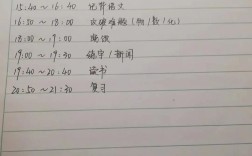 15:40～16:40 记背语文
16:50～18:00 攻破难题(物/数/化)
18:00～19:00 晚饭
19:00～19:30 练字/新闻
19:40～20:40 读书
20:50～21:30 复习